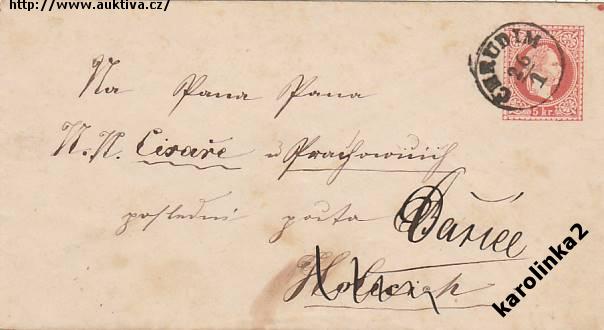 http://www.auktiva.cz/
CHRUDIM
26
1
5 kr.
Na Pana Pana
N. N. Cisaře u Prachownich
poslední pošta Dašice
karolinka2